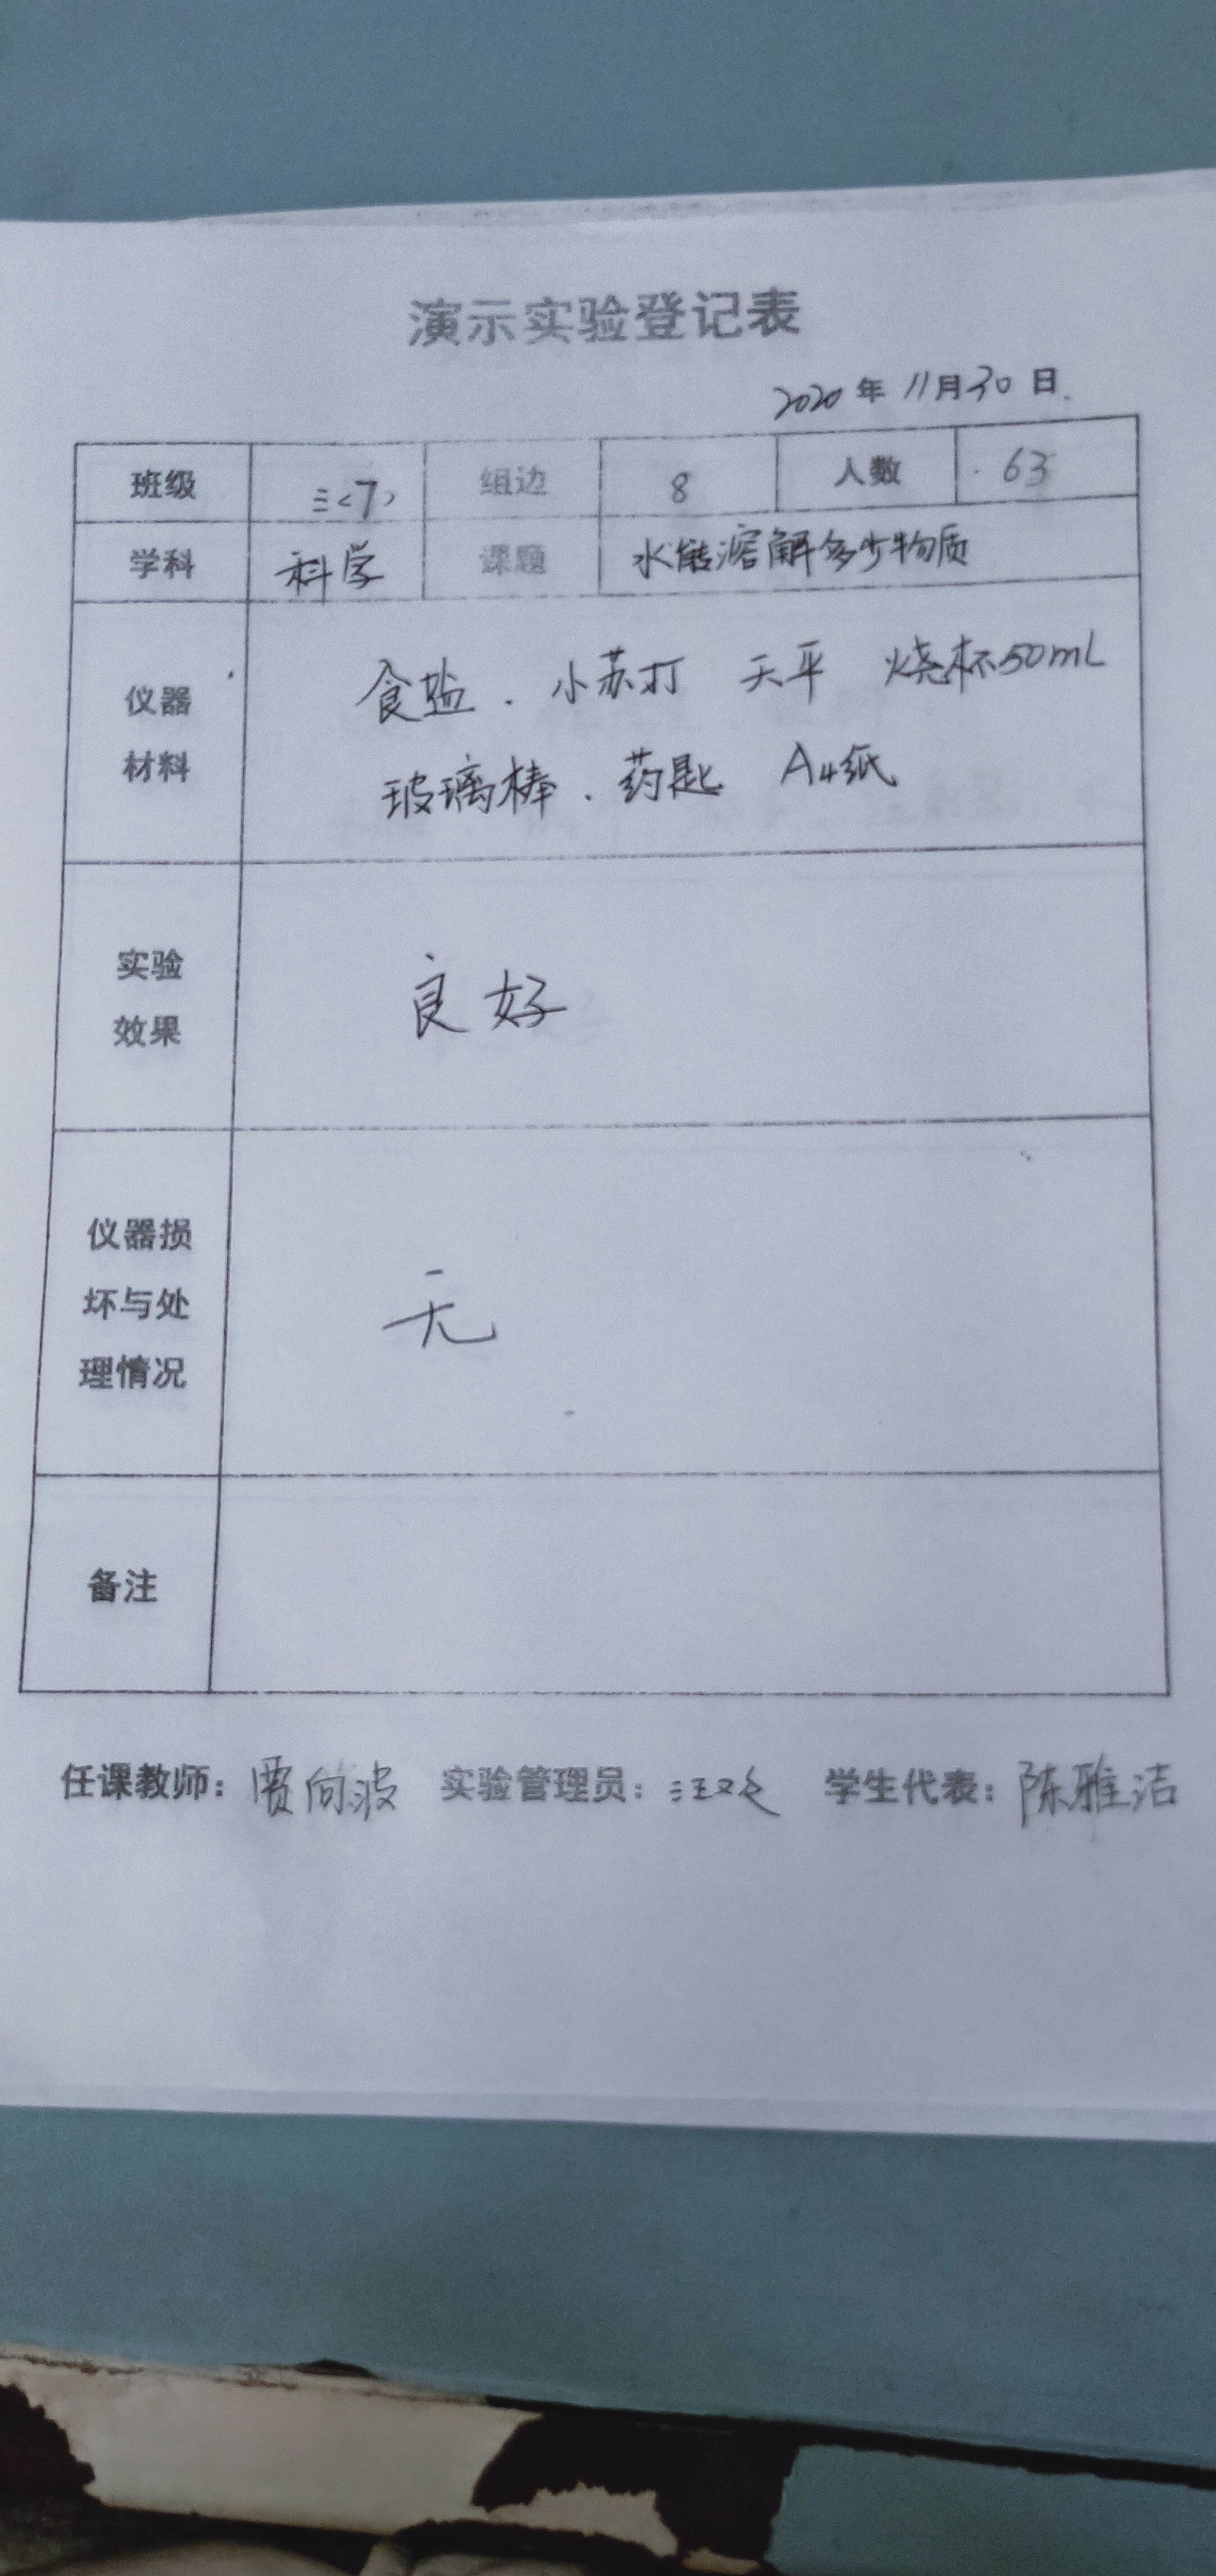 演示实验登记表
2020年11月30日.
班级 三<7> 组边 8 人数 63
学科 科学 课题 水能溶解多少物质
仪器材料
食盐. 小苏打 天平 烧杯50mL
玻璃棒. 药匙 A4纸
实验效果
良好
仪器损坏与处理情况
无
备注
任课教师: 贾向波 实验管理员: 学生代表: 陈雅洁